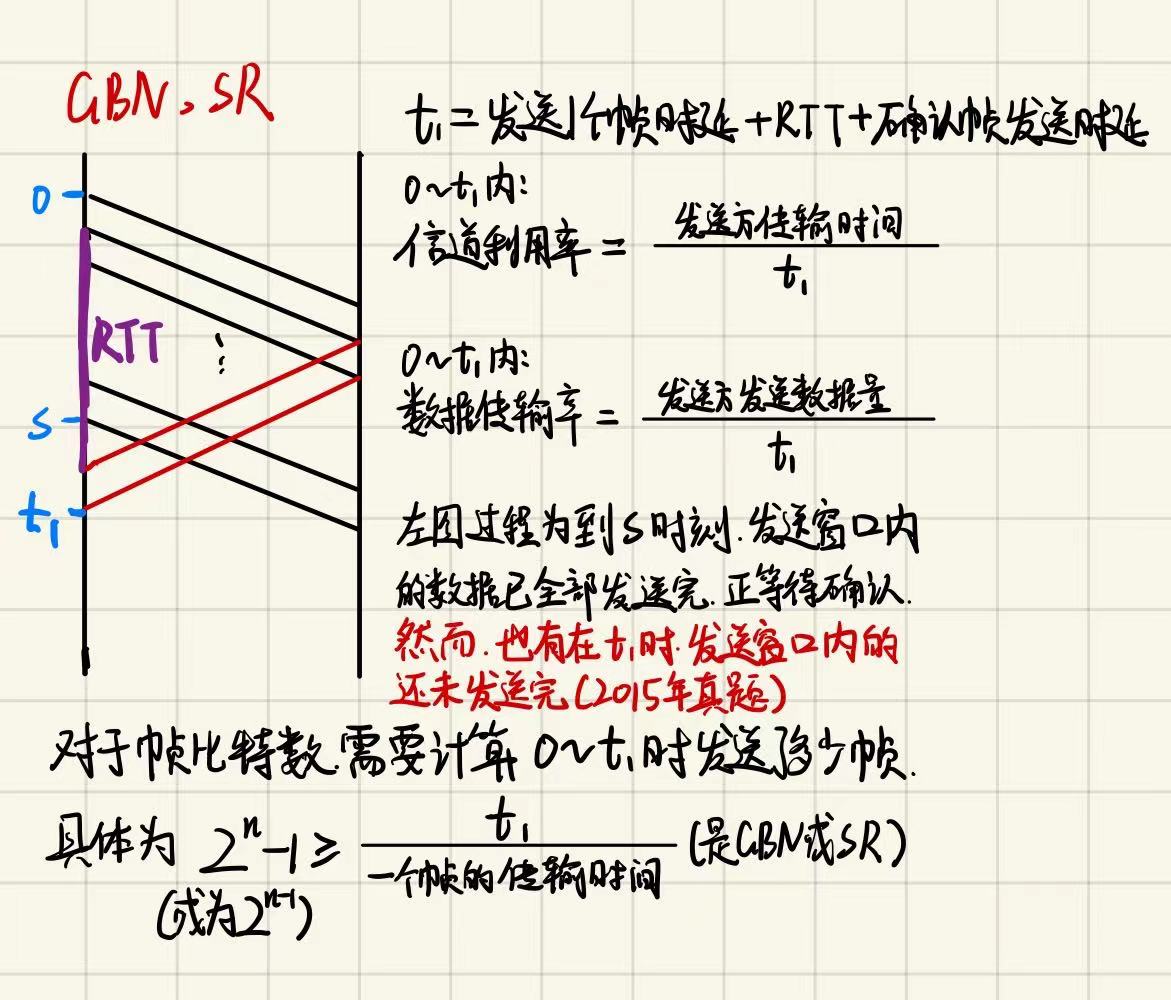 GBN、SR
t₁=发送1个帧时延+RTT+确认帧发送时延
0
0~t₁内:
信道利用率 = 发送方传输时间
t₁
RTT
0~t₁内:
数据传输率 = 发送方发送数据量
t₁
S
t₁
左图过程为到S时刻.发送窗口内
的数据已全部发送完.正等待确认.
然而.也有在t₁时.发送窗口内的
还未发送完(2015年真题)
对于帧比特数.需要计算0~t₁时发送多少帧.
具体为 2ⁿ-1 ≥ t₁ (是GBN或SR)
一个帧的传输时间
(或为2ⁿ⁻¹)